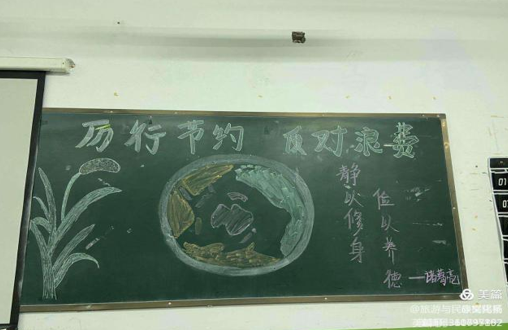 厉行节约 反对浪费
静以修身
俭以养德
——诸葛亮
01
07
美篇
@旅游与民族文化系